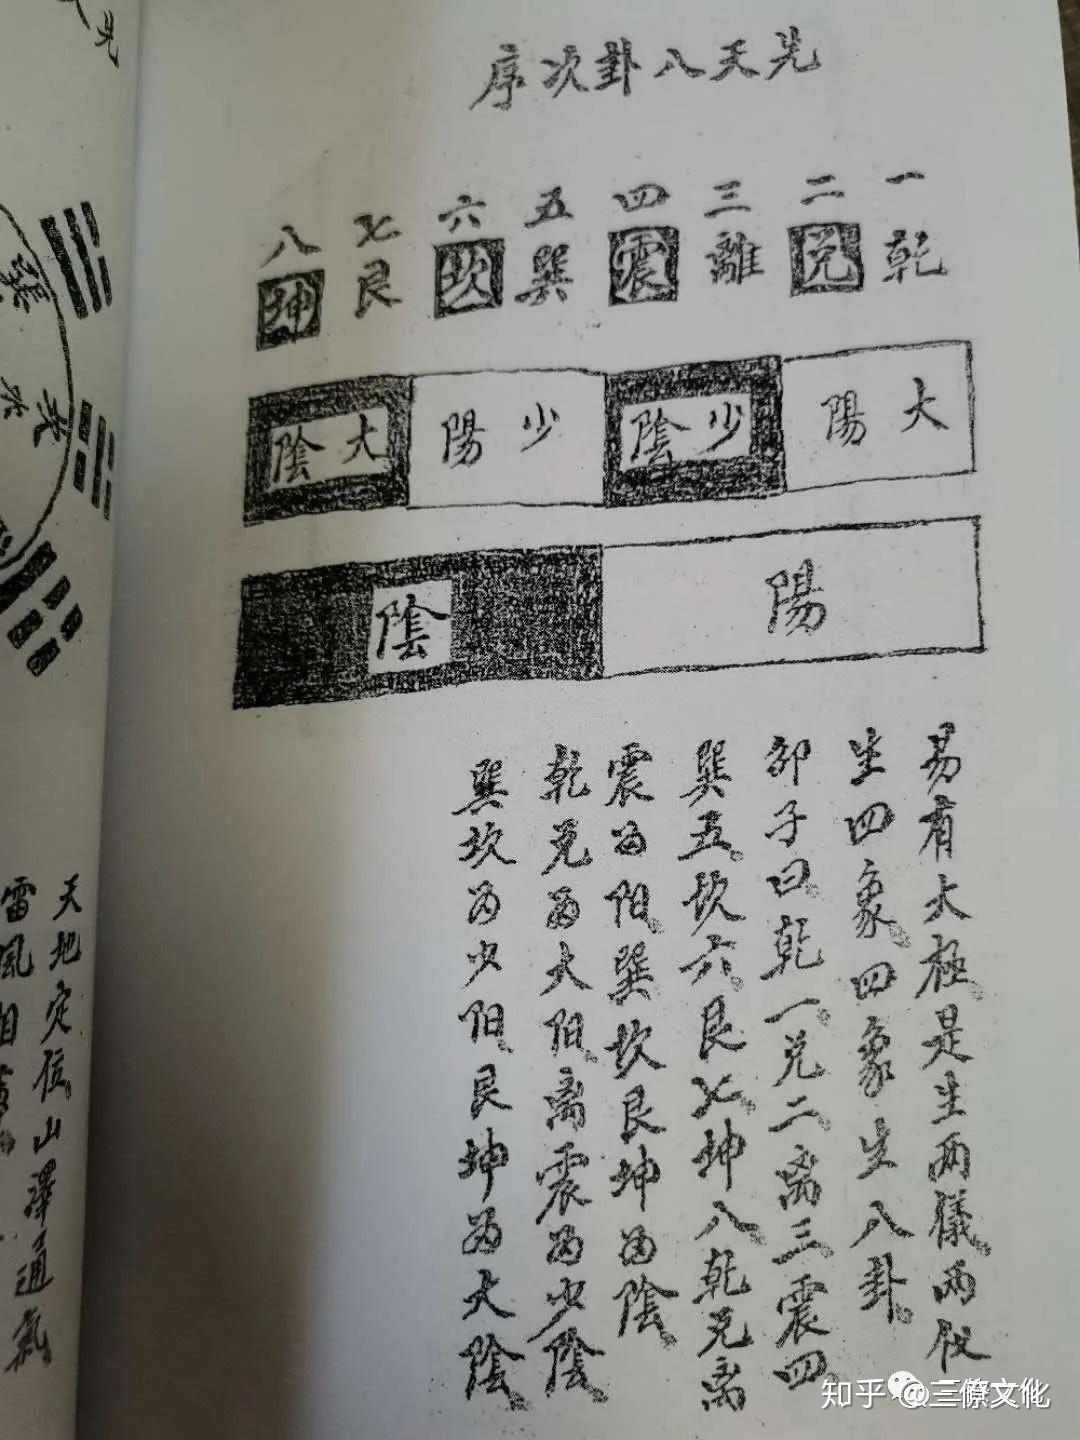 先天八卦次序
一乾
二兑
三離
四震
五巽
六坎
七艮
八坤
大陽
少陰
少陽
大陰
陽
陰
易有太極是生两儀两仪
生四象四象生八卦
邵子曰乾一兑二离三震四
巽五坎六艮七坤八乾兑离
震为阳巽坎艮坤为陰
乾兑为太阳离震为少陰
巽坎为少阳艮坤为太陰
天地定位山澤通氣
雷風相
知乎 @三僚文化